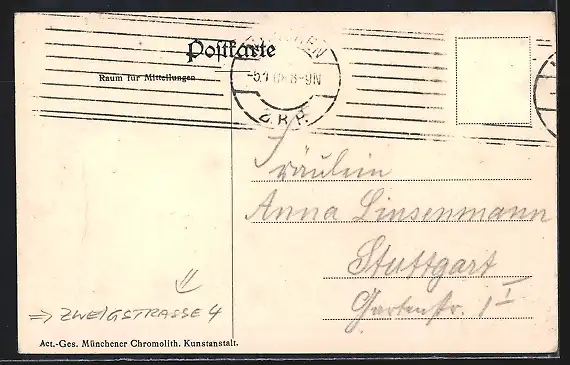 Postkarte
Raum für Mitteilungen
8-9N
Fräulein
Anna Linsenmann
Stuttgart
Gartenstr. 1 I
⇒ ZWEIGSTRASSE 4
Act.-Ges. Münchener Chromolith. Kunstanstalt.